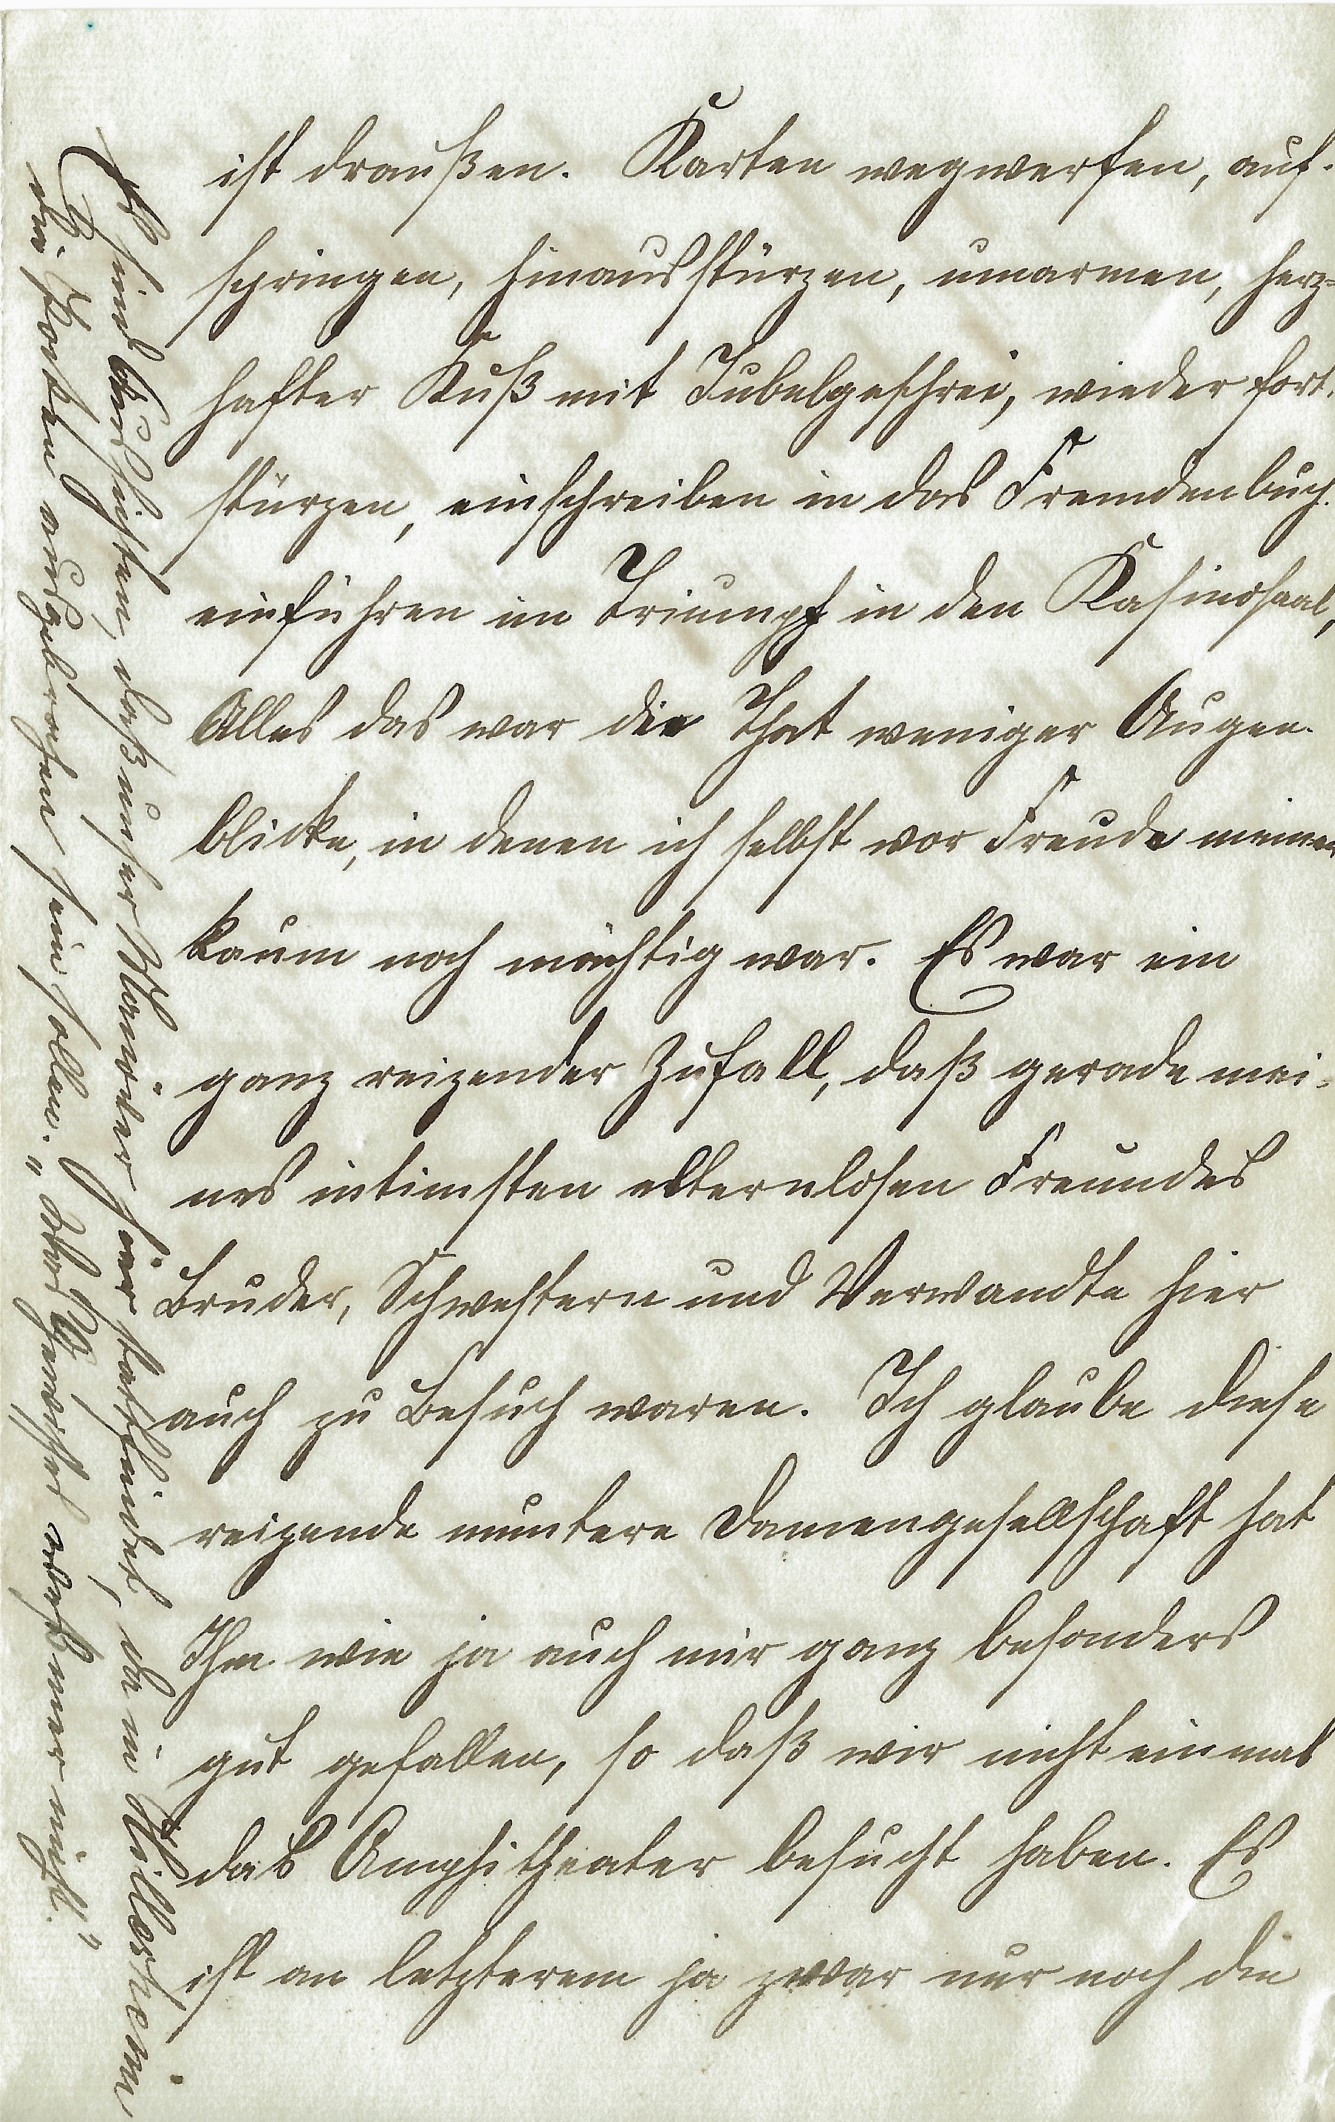 ist draußen. Karten wegwerfen, auf-
springen, hinausstürzen, umarmen, herz-
hafter Kuß mit Jubelgeschrei, wieder fort-
stürzen, einschreiben in das Fremdenbuch.
einführen im Triumpf in den Kasinosaal,
Alles das war die That weniger Augen-
blicke, in denen ich selbst vor Freude meiner
kaum noch mächtig war. Es war ein
ganz reizender Zufall, daß gerade mei-
nes intimsten elternlosen Freundes
Bruder, Schwestern und Verwandte hier
auch zu Besuch waren. Ich glaube diese
reizende muntere Damengesellschaft hat
Ihm wie ja auch mir ganz besonders
gut gefallen, so daß wir nicht einmal
das Amphitheater besucht haben. Es
ist an letzterem ja zwar nur noch die
Es sind Aussichten, daß unser Manöver hier stattfindet, da in Hillesheim
die Pocken ausgebrochen sein sollen. "Aber Gewisses weiß mer nicht."